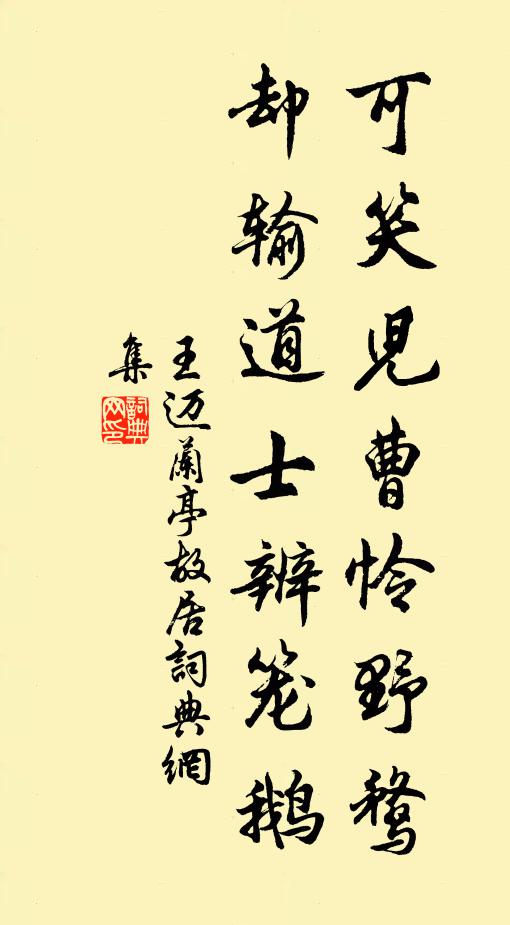 可笑児曹怜野鹜
却输道士辨笼鹅
王迈蘭亭故居詞典網
集
詞典网印